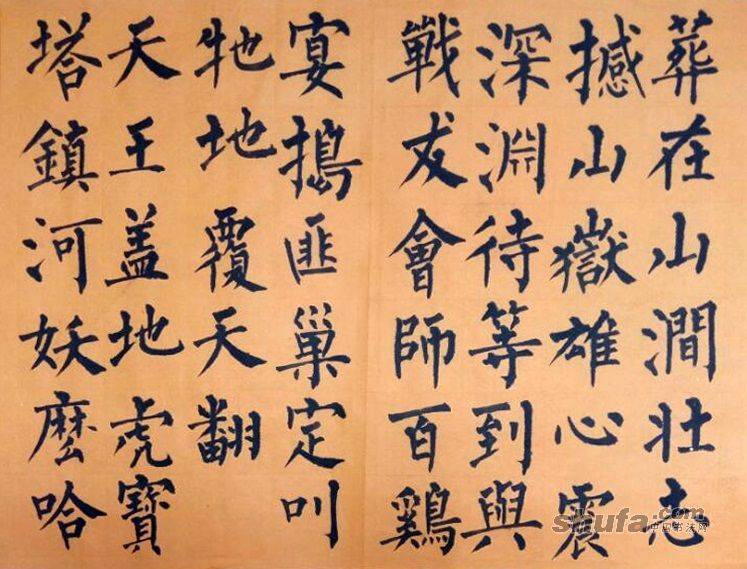 葬在山澗壮志
撼山嶽雄心震
深淵待等到與
戰友會師百鷄
宴搗匪巢定叫
牠地覆天翻
天王盖地虎寶
塔鎮河妖麼哈
shufa.com
中国书法网